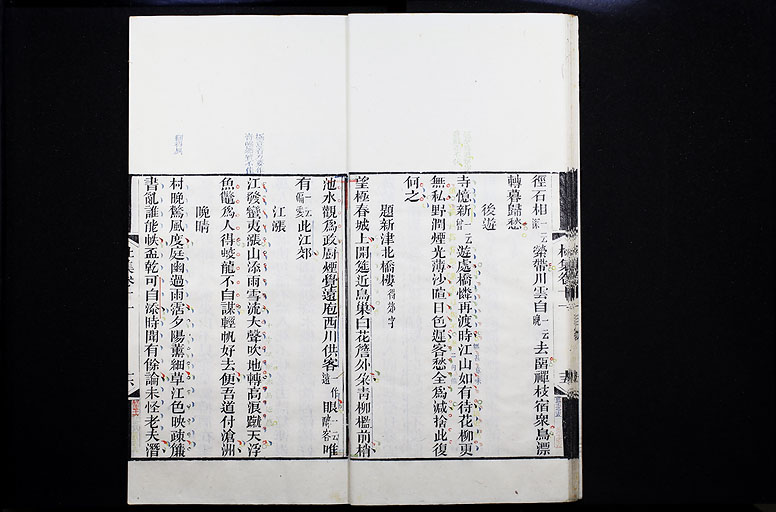 徑石相深一云縈帶川雲自晚一云去留禪枝宿衆鳥漂
轉暮歸愁
後遊
寺憶新曾一云遊處橋憐再渡時江山如有待花柳更
無私野潤煙光薄沙暄日色遲客愁全爲減捨此復
何之
題新津北橋樓得郊字
望極春城上開筵近鳥巢白花簷外朵青柳檻前梢
池水觀爲政厨煙覺遠庖西川供客遠作眼一云醉客唯
有一云偏愛此江郊
江漲
江發蠻夷漲山添雨雪流大聲吹地轉高浪蹴天浮
魚鼈爲人得蛟龍不自謀輕帆好去便吾道付滄洲
晚晴
村晚驚風度庭幽過雨霑夕陽薰細草江色映疎簾
書亂誰能帙盃乾可自添時聞有餘論未怪老夫潛
杜集卷十一